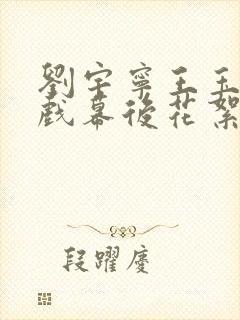 劉宇寧王玉
戲幕後花絮
段躍慶